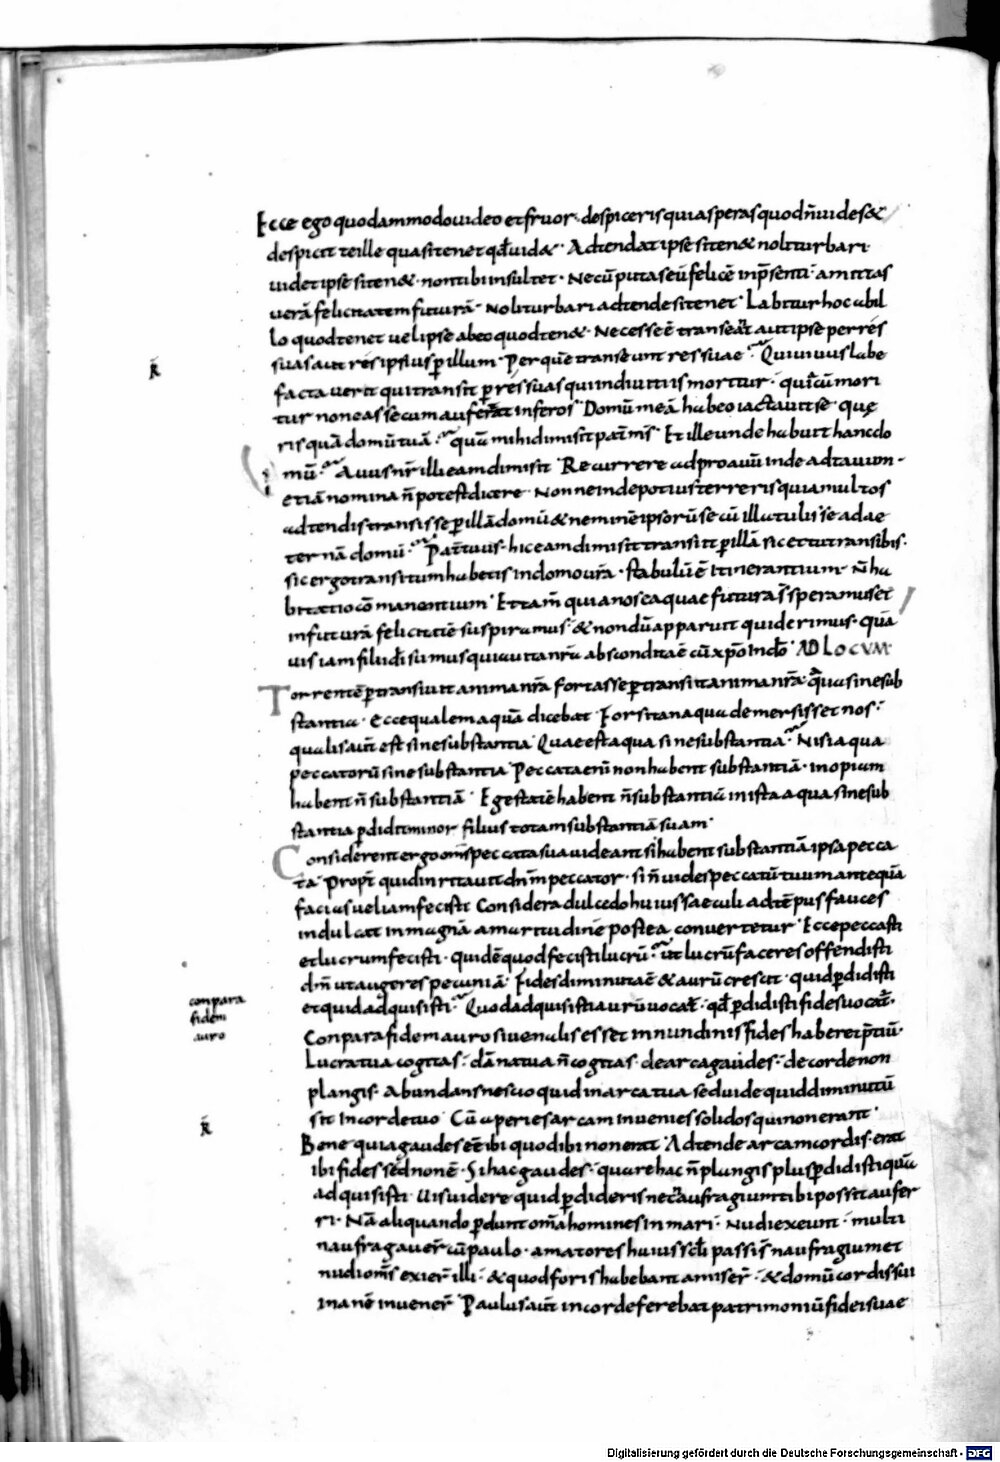 Ecce ego quodammodo uideo et fruor · despiceris quia speras quod n̄ uides &
despicit te ille quasi tenet qđ uid& · Adtendat ipse si ten& noli turbari
uidet ipse si ten& · non tibi insultet · Necū puta seū felicē inp̄senti · amittas
uerā felicitatem futurā · Noli turbari adtende si tenet · Labitur hoc ab il
lo quod tenet uel ipse ab eo quod ten& · Necesse ē transeat aut ipse per res
suas aut res ipsius p̱ illum · Per quē transeunt res suae · Qui uiuus labe
facta uerit qui transit p̱ res suas qui in diuitiis moritur · qui cū mori
tur non eas secum auferat inferos · Domū meā habeo iactauit se · quę
ris quā domū tuā · quā mihi dimisit pat̄ m̄s · Et ille unde habuit hanc do
mū · Auus nr̄ illi eam dimisit · Recurrere ad proauū inde ad tauum ·
etiā nomina n̄ potest dicere · Nonne inde potius terreris quia multos
adtendis transisse p̱ illā domū & neminē ipsorū se cū illa tulisse ad ae
ternā domū · Pat̄ tuus · hic eam dimisit transiit p̱ illā sic et tu transibis ·
sic ergo transitum habetis in domo ur̄a · stabulū ē itinerantium · n̄ ha
bitatio cōmanentium · Et tam̄ quia nos ea quae futura s̄ speramus et
in futurā felicitatē suspiramus · & nondū apparuit quid erimus · quā
uis iam filii dī sumus quia uita nr̄a abscondita ē cū xp̄o in dō · AD LOCVM
Torrentē p̱transiuit anima nr̄a fortasse p̱transiit anima nr̄a aquā sine sub
stantia · Ecce qualem aquā dicebat · Forsitan aqua demersisset nos ·
qualis aut̄ est sine substantia · Quae est aqua sine substantia · Nisi aqua
peccatorū sine substantia · Peccata enī non habent substantiā · inopiam
habent n̄ substantiā · Egestatē habent n̄ substantiā in ista aqua sine sub
stantia p̱didit minor filius totam substantiā suam ·
Considerent ergo om̄s peccata sua uideant si habent substantiā ipsa pecca
ta · Propt̄ quid inritauit dn̄m peccator · si n̄ uides peccatū tuum antequā
facias uel iam fecisti · Considera dulcedo huius saeculi ad tēpus fauces
indulcat in magnā amaritudinē postea conuertetur · Ecce peccasti
et lucrum fecisti · quidē quod fecisti lucrū · ut lucrū faceres offendisti
dm̄ ut augeres pecuniā · Fides diminuta ē & aurū crescit · quid p̱didisti
et quid adquisisti · Quod adquisisti aurū uocat̄ · qđ p̱didisti fides uocat̄ ·
conpara
fidem
auro
Conpara fidem auro si uenalis esset in nundinis fides haberet p̄tiū ·
Lucra tua cogitas · dāna tua n̄ cogitas · de arca gaudes · de corde non
plangis · Abundans nescio quid in arca tua sed uide quid diminutū
sit in corde tuo · Cū aperies arcam inuenies solidos qui non erant ·
Bene quia gaudes eē ibi quod ibi non erat · Adtende arcam cordis · erat
ibi fides sed non ē · Si hac gaudes · quare hac n̄ plangis plus p̱didisti quā
adquisisti · Uis uidere quid p̱dideris nec naufragium tibi possit aufer
ri · Nā aliquando p̱dunt om̄a homines in mari · Nudi exeunt · multi
naufragauer̄ cū paulo · amatores huius scl̄i passi s̄ naufragium et
nudi om̄s exier̄ illi · & quod foris habebant amiser̄ · & domū cordis sui
inanē inuener̄ · Paulus aut̄ in corde ferebat patrimoniū fidei suae
Digitalisierung gefördert durch die Deutsche Forschungsgemeinschaft - DFG